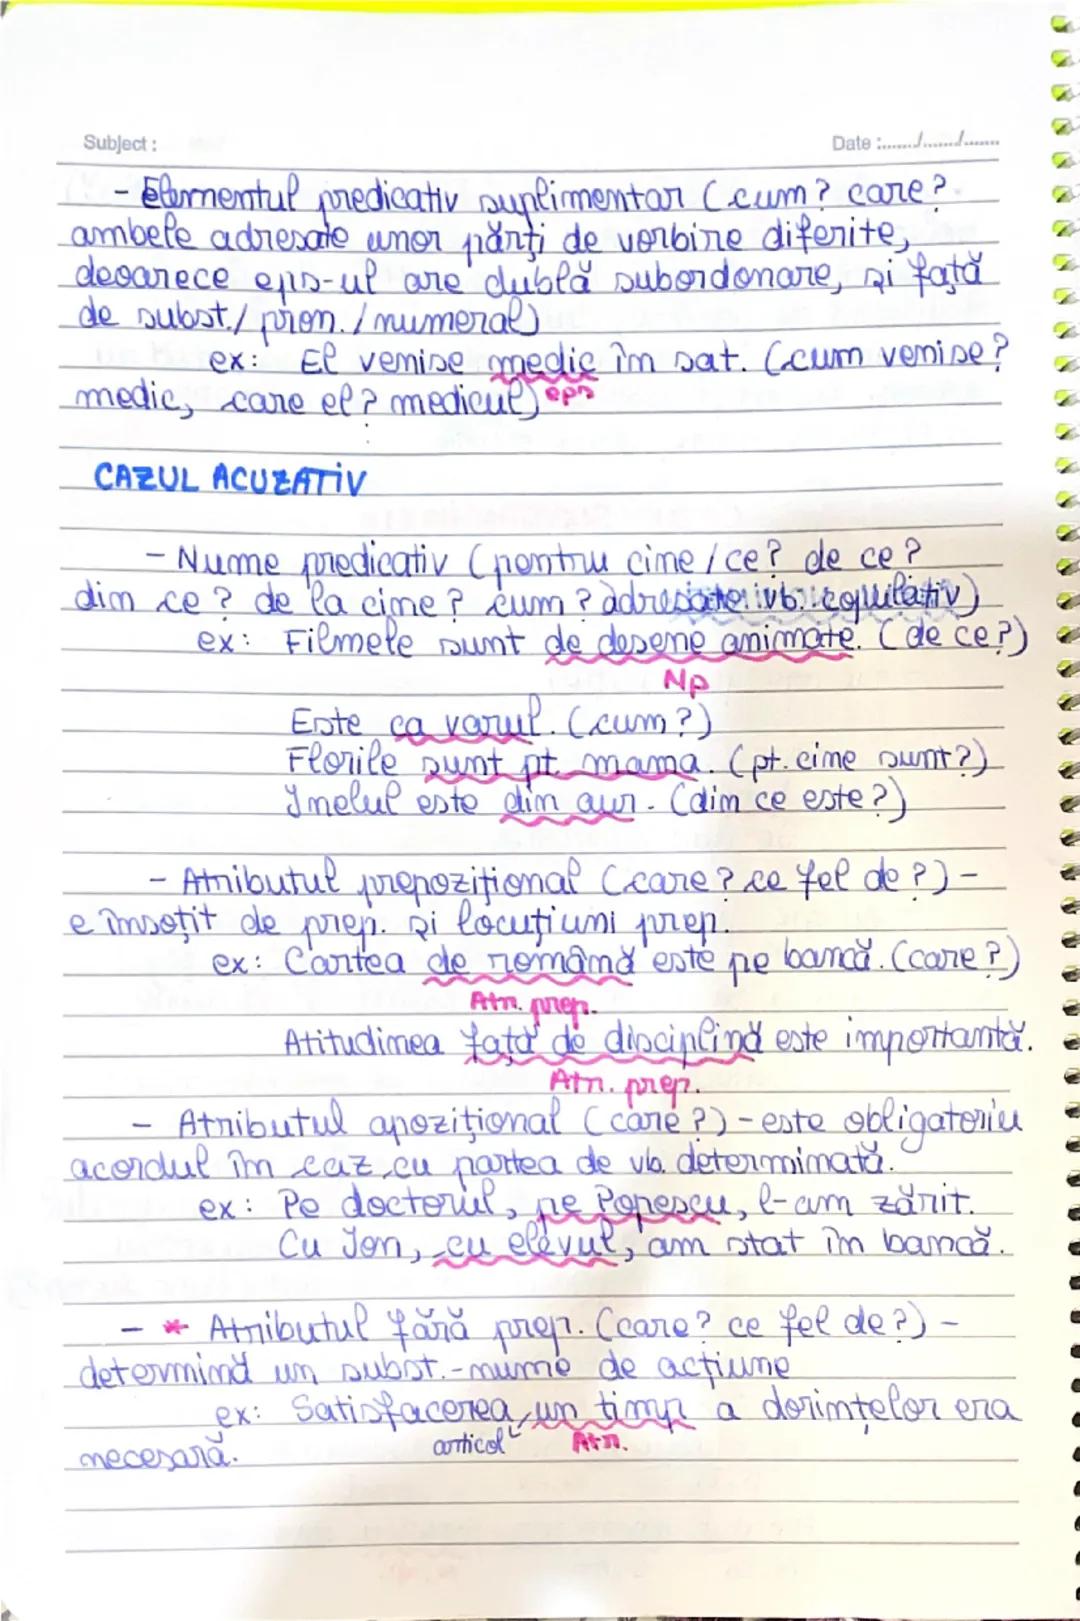 Subject :
Date :......../......../........
- Elementul predicativ suplimentar (cum? care?
ambele adresate unor părți de vorbire diferite,
deoarece eps-ul are dublă subordonare, și față
de subst./ pron. / numeral)
ex: El venise medic în sat. (cum venise?
medic, care el? medicul) eps
CAZUL ACUZATIV
- Nume predicativ (pentru cine / ce? de ce?
din ce? de la cine? cum? adresate vb. copulativ)
ex: Filmele sunt de desene animate. (de ce?)
Np
Este ca varul. (cum?)
Florile sunt pt. mama. (pt. cine sunt?)
Inelul este din aur. (din ce este?)
- Atributul prepozițional (care? ce fel de?) -
e însoțit de prep. și locuțiuni prep.
ex: Cartea de română este pe bancă. (care?)
Atr. prep.
Atitudinea față de disciplină este importantă.
Atr. prep.
- Atributul apozițional (care?) - este obligatoriu
acordul în caz cu partea de vb. determinată.
ex: Pe doctorul, pe Popescu, l-am zărit.
Cu Ion, cu elevul, am stat în bancă.
- * Atributul fără prep. (care? ce fel de?) -
determină un subst.-nume de acțiune
ex: Satisfacerea un timp a dorințelor era
articol Atr.
necesară.